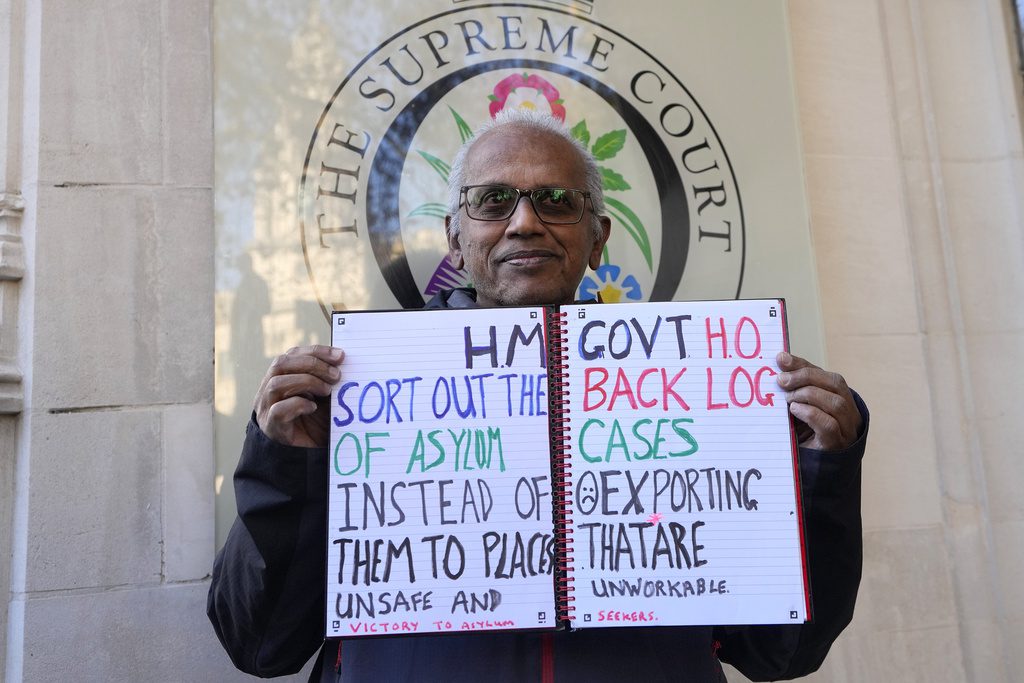 THE SUPREME COURT
H.M GOVT H.O.
SORT OUT THE BACK LOG
OF ASYLUM CASES
INSTEAD OF EXPORTING
THEM TO PLACES THAT ARE
UNSAFE AND UNWORKABLE.
VICTORY TO ASYLUM SEEKERS.